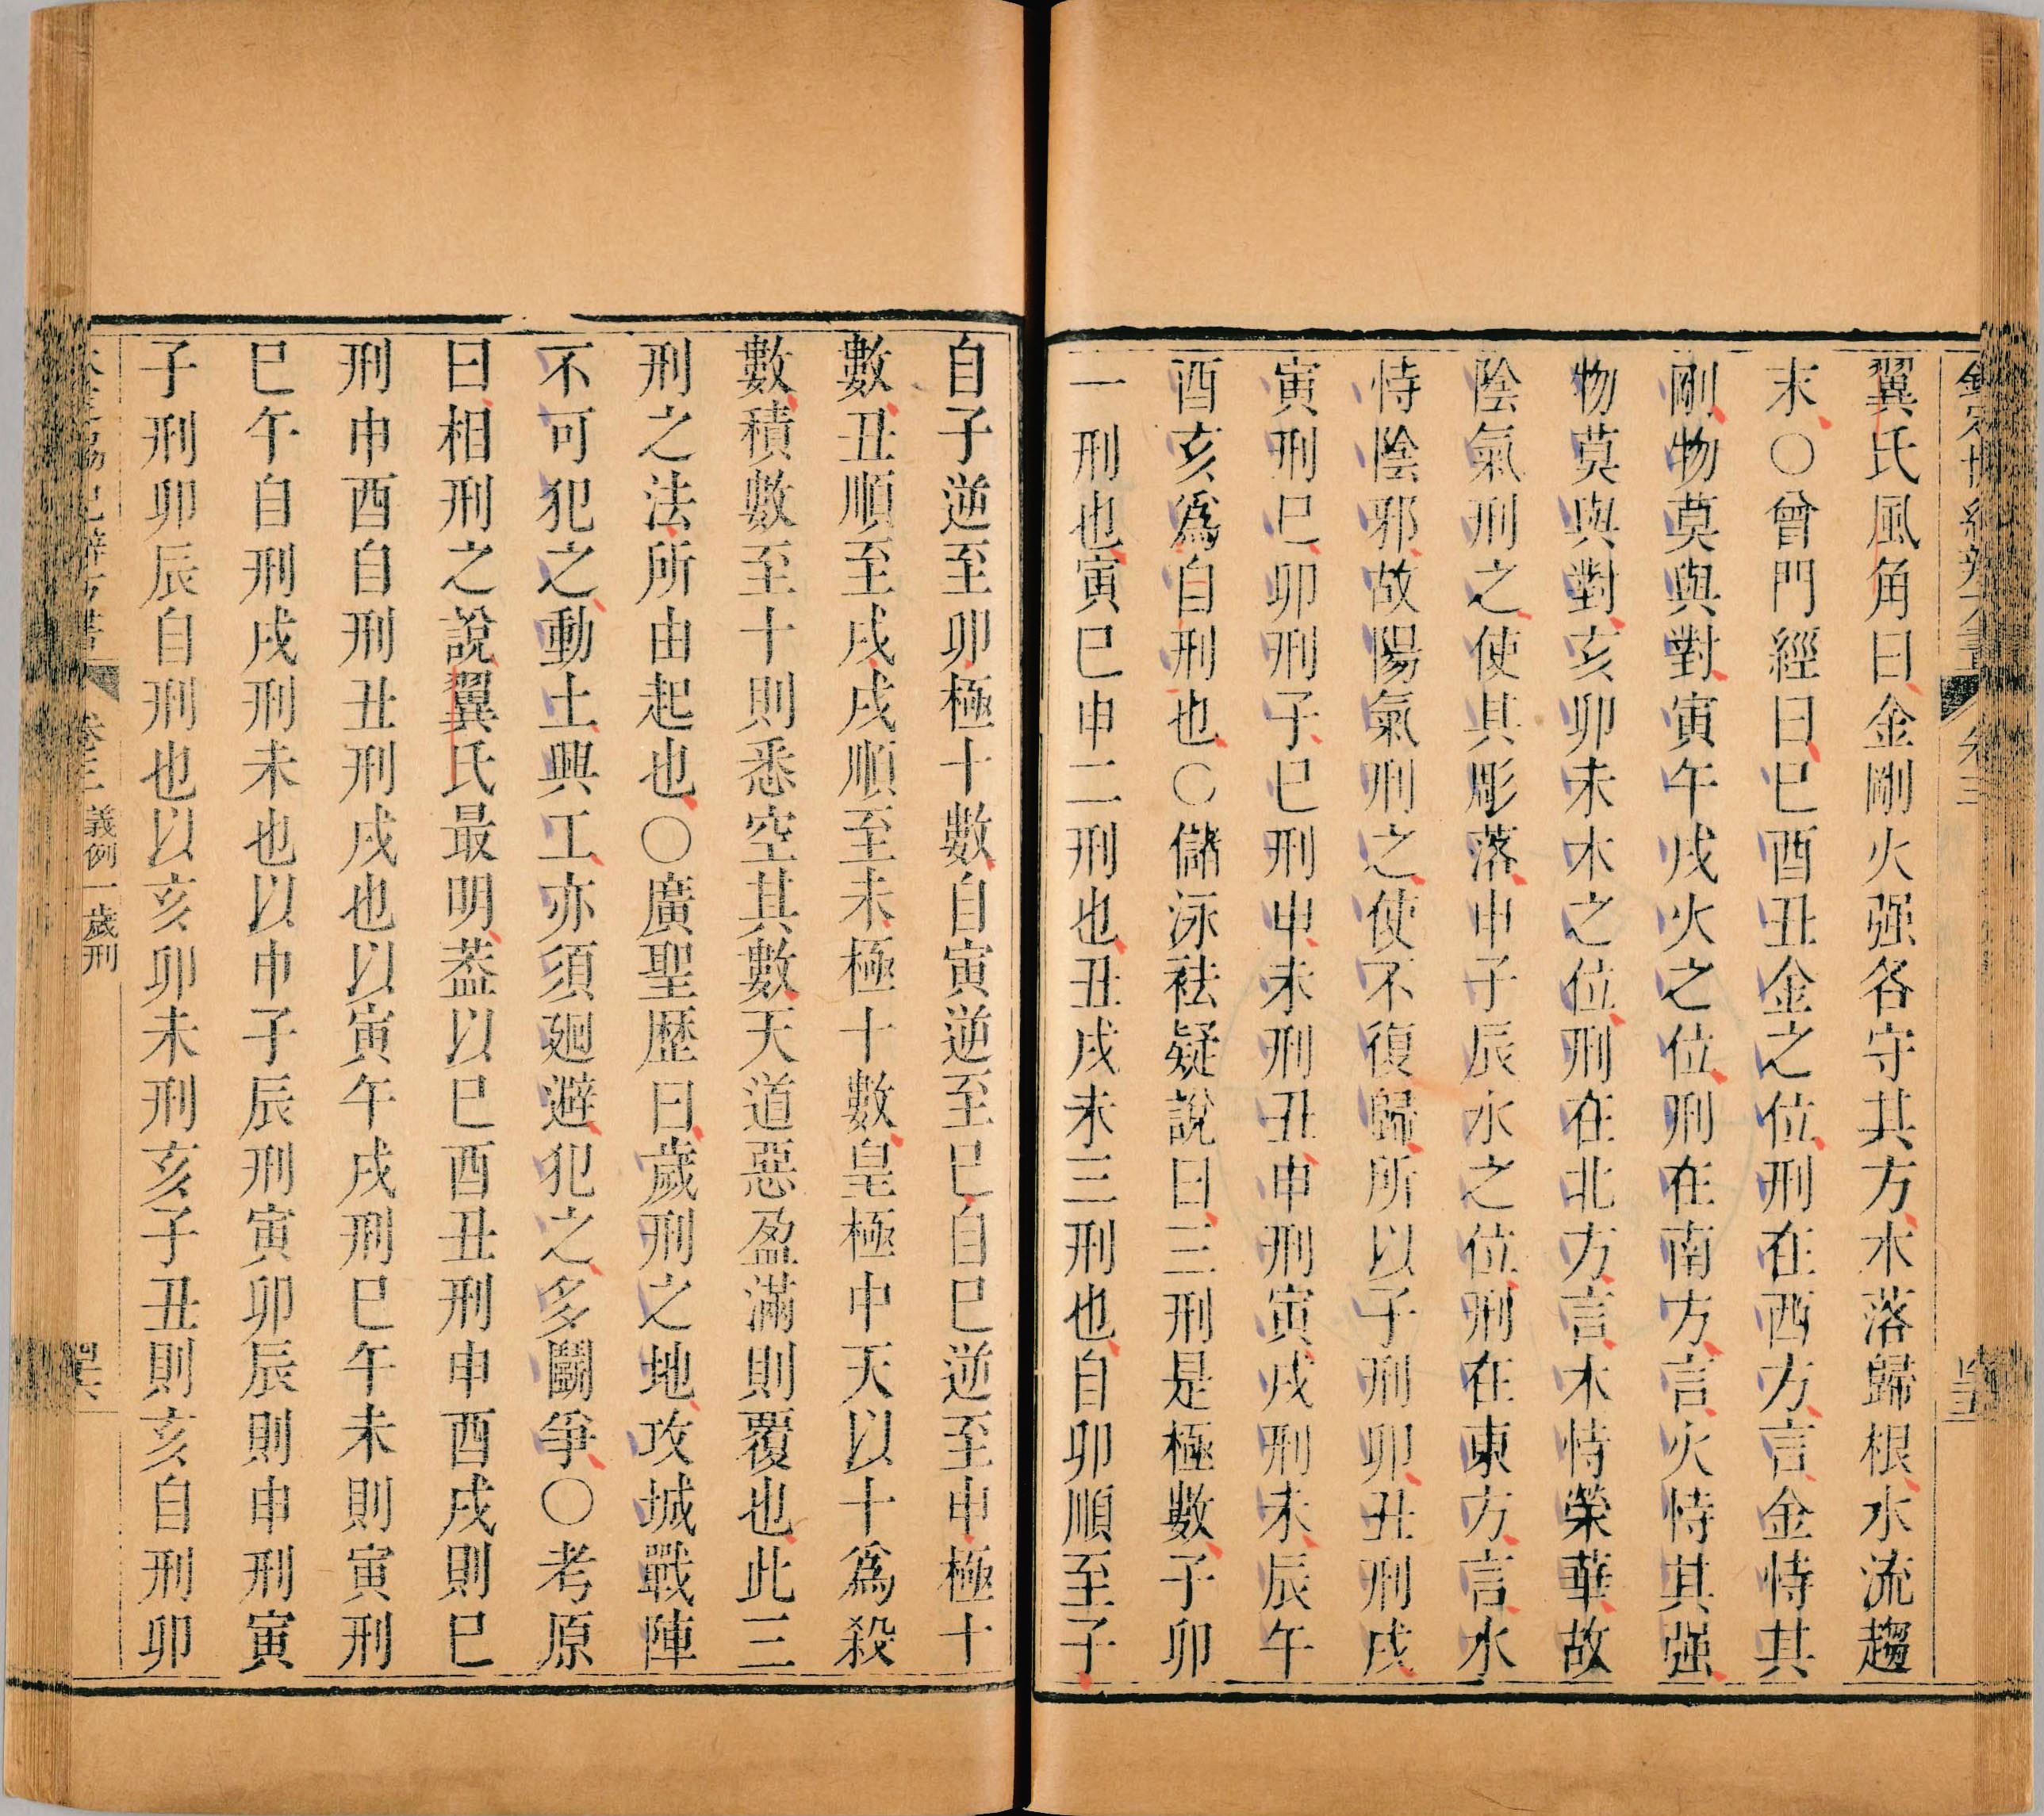 翼氏風角曰金剛火强各守其方木落歸根水流趨
末○曾門經曰巳酉丑金之位刑在西方言金恃其
剛物莫與對寅午戌火之位刑在南方言火恃其强
物莫與對亥卯未木之位刑在北方言木恃榮華故
陰氣刑之使其彫落申子辰水之位刑在東方言水
恃陰邪故陽氣刑之使不復歸所以子刑卯丑刑戌
寅刑巳卯刑子巳刑申未刑丑申刑寅戌刑未辰午
酉亥爲自刑也○儲泳祛疑說曰三刑是極數子卯
一刑也寅巳申二刑也丑戌未三刑也自卯順至子
自子逆至卯極十數自寅逆至巳自巳逆至申極十
數丑順至戌戌順至未極十數皇極中天以十爲殺
數積數至十則悉空其數天道惡盈滿則覆也此三
刑之法所由起也○廣聖歴曰歲刑之地攻城戰陣
不可犯之動土興工亦須廻避犯之多鬭爭○考原
曰相刑之說翼氏最明葢以巳酉丑刑申酉戌則巳
刑申酉自刑丑刑戌也以寅午戌刑巳午未則寅刑
巳午自刑戌刑未也以申子辰刑寅卯辰則申刑寅
子刑卯辰自刑也以亥卯未刑亥子丑則亥自刑卯
卷三 義例一歲刑